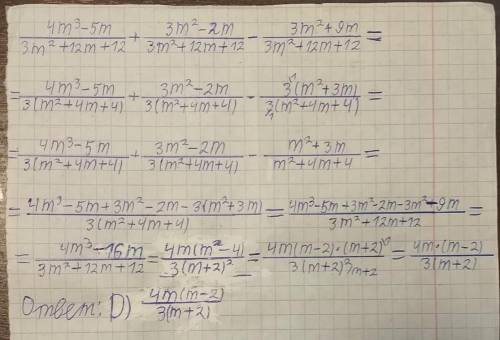 (4m³-5m)/(3m²+12m+12) + (3m²-2m)/(3m²+12m+12) - (3m²+9m)/(3m²+12m+12) =
= (4m³-5m)/(3(m²+4m+4)) + (3m²-2m)/(3(m²+4m+4)) - (3¹(m²+3m))/(3₁(m²+4m+4)) =
= (4m³-5m)/(3(m²+4m+4)) + (3m²-2m)/(3(m²+4m+4)) - (m²+3m)/(m²+4m+4) =
= (4m³-5m+3m²-2m-3(m²+3m))/(3(m²+4m+4)) = (4m³-5m+3m²-2m-3m²-9m)/(3m²+12m+12) =
= (4m³-16m)/(3m²+12m+12) = (4m(m²-4))/(3(m+2)²) = (4m(m-2)·(m+2)¹)/(3(m+2)² m+2) = (4m·(m-2))/(3(m+2))
Ответ: D) (4m(m-2))/(3(m+2))